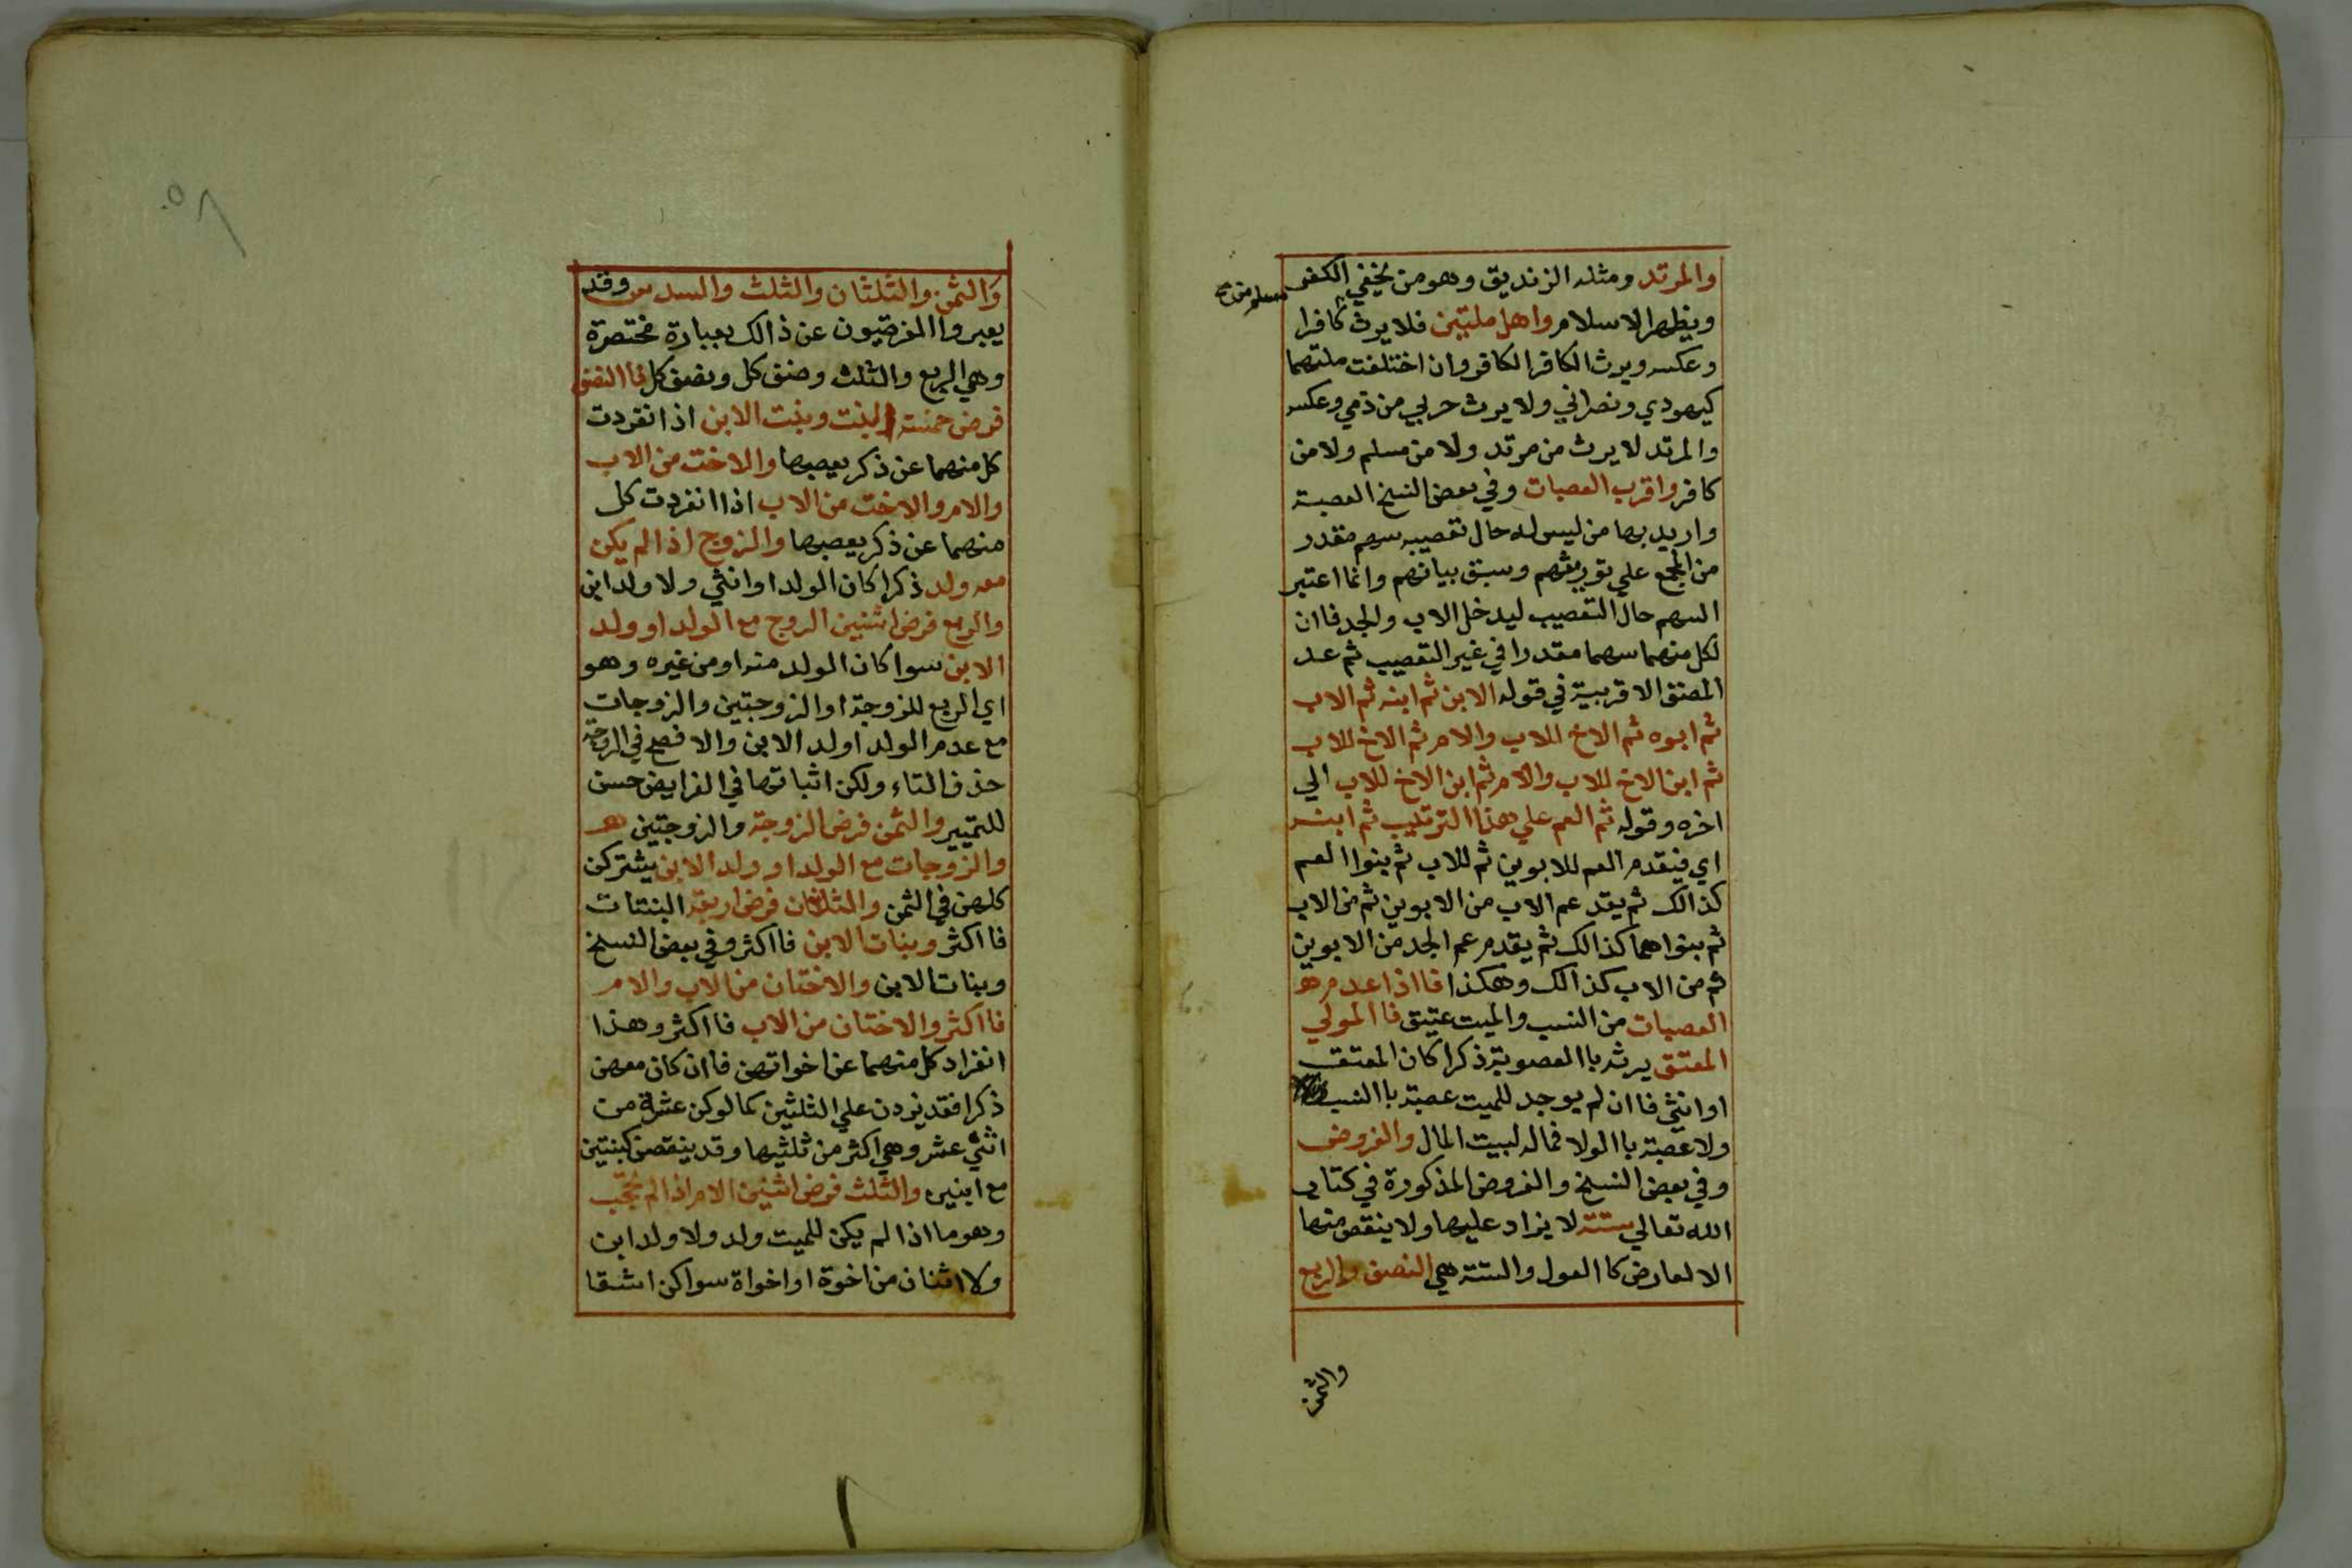 والمرتد ومثله الزنديق وهو من يخفي الكفر
ويظهر الاسلام واهل ملتين فلا يرث كافرا
مسلم من صح
وعكسه ويرث الكافر الكافر وان اختلفت ملتهما
كيهودي ونصراني ولا يرث حربي من ذمي وعكسه
والمرتد لا يرث من مرتد ولا من مسلم ولا من
كافر واقرب العصبات وفي بعض النسخ العصبة
واريد بها من ليس له حال تعصيبه سهم مقدر
من المجمع علي توريثهم وسبق بيانهم وانما اعتبر
السهم حال التعصيب ليدخل الاب والجد فاان
لكل منهما سهما مقدرا في غير التعصيب ثم عد
المصنف الاقربية في قوله الابن ثم ابنه ثم الاب
ثم ابوه ثم الاخ للاب والام ثم الاخ للاب
ثم ابن الاخ للاب والام ثم ابن الاخ للاب الي
اخره وقوله ثم العم علي هذا الترتيب ثم ابنه
اي فيقدم العم للابوين ثم للاب ثم بنوا العم
كذالك ثم يقد عم الاب من الابوين ثم من الاب
ثم بنواهما كذالك ثم يقدم عم الجد من الابوين
ثم من الاب كذالك وهكذا فااذا عدم هو
العصبات من النسب والميت عتيق فاالمولي
المعتق يرثه باالعصوبة ذكرا كان المعتق
او انثي فاان لم يوجد للميت عصبة باالنسب
ولا عصبة باالولا فماله لبيت المال والفروض
وفي بعض النسخ والفروض المذكورة في كتاب
الله تعالي ستة لا يزاد عليها ولا ينقص منها
الا لعارض كاالعول والستة هي النصف والربع
والثمن
والثمن والثلثان والثلث والسدس وقد
يعبروا الفرضيون عن ذالك بعبارة مختصرة
وهي الربع والثلث وضعف كل ونصف كل فاالنصف
فرض خمسة البنت وبنت الابن اذا انفردت
كل منهما عن ذكر يعصبها والاخت من الاب
والام والاخت من الاب اذا انفردت كل
منهما عن ذكر يعصبها والزوج اذا لم يكن
معه ولد ذكرا كان الولد او انثي ولا ولد ابن
والربع فرض اثنين الزوج مع الولد او ولد
الابن سوا كان الولد منه او من غيره وهو
اي الربع للزوجة او الزوجتين والزوجات
مع عدم الولد او لد الابن والا فصح في الزوجة
حذف التاء ولكن اثباتها في الفرايض حسن
للتمييز والثمن فرض الزوجة والزوجتين هو
والزوجات مع الولد او ولد الابن يشتركن
كلهن في الثمن والثلثان فرض اربعة البنتات
فااكثر وبنات الابن فااكثر وفي بعض النسخ
وبنات الابن والاختان من الاب والام
فااكثر والاختان من الاب فااكثر وهذا
انفراد كل منهما عن اخواتهن فاان كان معهن
ذكرا فقد يزدن علي الثلثين كما لو كن عشرة من
اثني عشر وهي اكثر من ثلثيها وقد ينقصن كبنتين
مع ابنين والثلث فرض اثنين الام اذا لم تحجب
وهو ما اذا لم يكن للميت ولد ولا ولد ابن
ولا اثنان من اخوة او اخواة سوا كن اشقا